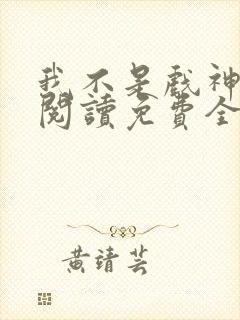 我不是戲神
閱讀免費全
黃靖芸